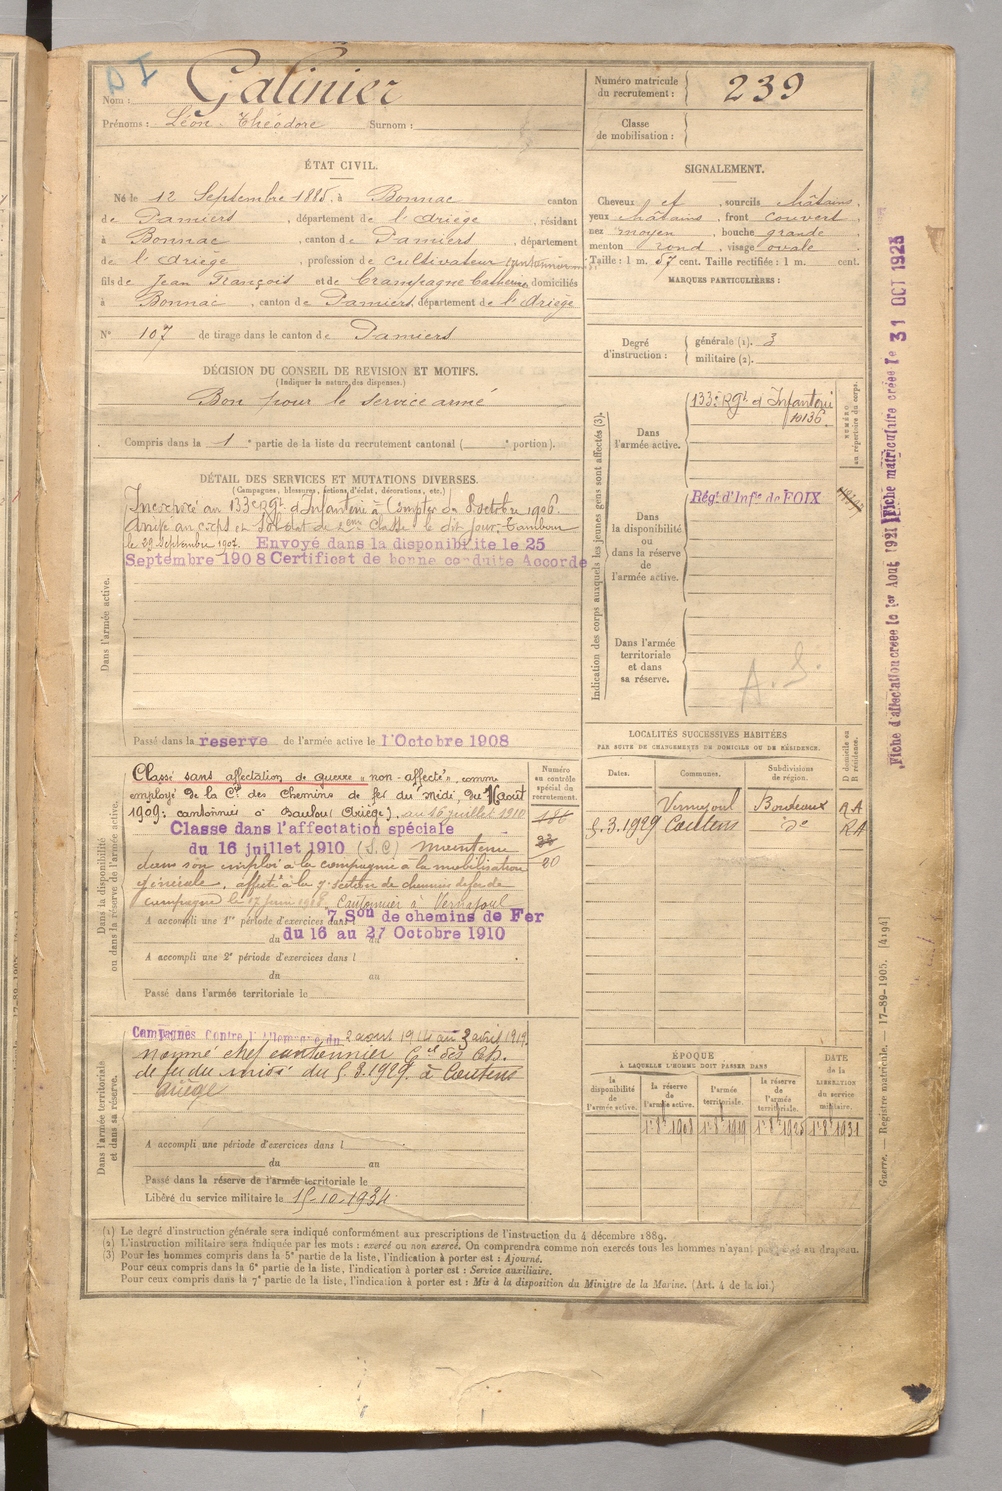 Nom : Galinier
Prénoms : Léon Théodore Surnom :
Numéro matricule du recrutement : 239
Classe de mobilisation :
ÉTAT CIVIL.
Né le 12 Septembre 1885, à Bonnac canton
de Pamiers, département de l'Ariège, résidant
à Bonnac, canton de Pamiers, département
de l'Ariège, profession de cultivateur cantonnier
fils de Jean François et de Crampagne Catherine domiciliés
à Bonnac, canton de Pamiers, département de l'Ariège
N° 107 de tirage dans le canton de Pamiers
SIGNALEMENT.
Cheveux et, sourcils châtains,
yeux châtains, front couvert,
nez moyen, bouche grande
menton rond, visage ovale
Taille : 1 m. 57 cent. Taille rectifiée : 1 m. cent.
MARQUES PARTICULIÈRES :
Degré d'instruction : générale (1). 3
militaire (2).
DÉCISION DU CONSEIL DE REVISION ET MOTIFS.
(Indiquer la nature des dispenses.)
Bon pour le service armé
Compris dans la 1e partie de la liste du recrutement cantonal ( e portion).
DÉTAIL DES SERVICES ET MUTATIONS DIVERSES.
(Campagnes, blessures, actions d'éclat, décorations, etc.)
Dans l'armée active.
Incorporé au 133e Rgt d'Infanterie à Compter du 8 octobre 1906.
Arrivé au corps et Soldat de 2eme Classe le dit jour. Tambour
le 29 Septembre 1907. Envoyé dans la disponibilite le 25
Septembre 1908 Certificat de bonne conduite Accorde
Passé dans la reserve de l'armée active le 1'Octobre 1908
Indication des corps auxquels les jeunes gens sont affectés (3).
Dans l'armée active.
133e Rgt d'Infanterie
10136.
NUMÉRO au répertoire du corps.
Dans la disponibilité ou dans la réserve de l'armée active.
Régt d'Infie de FOIX
Dans l'armée territoriale et dans sa réserve.
A. S.
Dans la disponibilité ou dans la réserve de l'armée active.
Classé sans affectation de guerre "non-affecté", comme
employé de la Cie des Chemins de fer du Midi, du 11 août
1909; cantonnier à Saulou (Ariège). au 16 juillet 1910
Classe dans l'affectation spéciale
du 16 juillet 1910 (S.C) maintenu
dans son emploi à la compagnie à la mobilisation
générale, affecté à la 7e section de chemins de fer de
campagne le 17 juin 1918. Cantonnier à Vernajoul
A accompli une 1re période d'exercices dans 7 Son de chemins de Fer
du 16 au 27 Octobre 1910
A accompli une 2e période d'exercices dans l
du au
Passé dans l'armée territoriale le
Numéro au contrôle spécial du recrutement.
20
LOCALITÉS SUCCESSIVES HABITÉES
PAR SUITE DE CHANGEMENTS DE DOMICILE OU DE RÉSIDENCE.
Dates. Communes. Subdivisions de région. D domicile ou R résidence.
Vernajoul Bordeaux RA
5.3.1929 Coutens do RA
Dans l'armée territoriale et dans sa réserve.
Campagnes Contre l'Allemagne du 2 août 1914 au 3 avril 1919.
nommé chef cantonnier Cie des Ch.
de fer du midi du 5.3.1929. à Coutens
Ariège
A accompli une période d'exercices dans l
du au
Passé dans la réserve de l'armée territoriale le
Libéré du service militaire le 15-10-1934.
ÉPOQUE
À LAQUELLE L'HOMME DOIT PASSER DANS
la disponibilité de l'armée active. la réserve de l'armée active. l'armée territoriale. la réserve de l'armée territoriale.
DATE de la LIBÉRATION du service militaire.
1r 8e 1908 1r 8e 1919 1r 8e 1925 1r 8e 1931
(1) Le degré d'instruction générale sera indiqué conformément aux prescriptions de l'instruction du 4 décembre 1889.
(2) L'instruction militaire sera indiquée par les mots : exercé ou non exercé. On comprendra comme non exercés tous les hommes n'ayant pas passé au drapeau.
(3) Pour les hommes compris dans la 5e partie de la liste, l'indication à porter est : Ajourné.
Pour ceux compris dans la 6e partie de la liste, l'indication à porter est : Service auxiliaire.
Pour ceux compris dans la 7e partie de la liste, l'indication à porter est : Mis à la disposition du Ministre de la Marine. (Art. 4 de la loi.)
Fiche d'affectation créée le 1er Aout 1921 Fiche matriculaire créée le 31 OCT 1923
Guerre. — Registre matricule. — 17-89-1905. [4194]